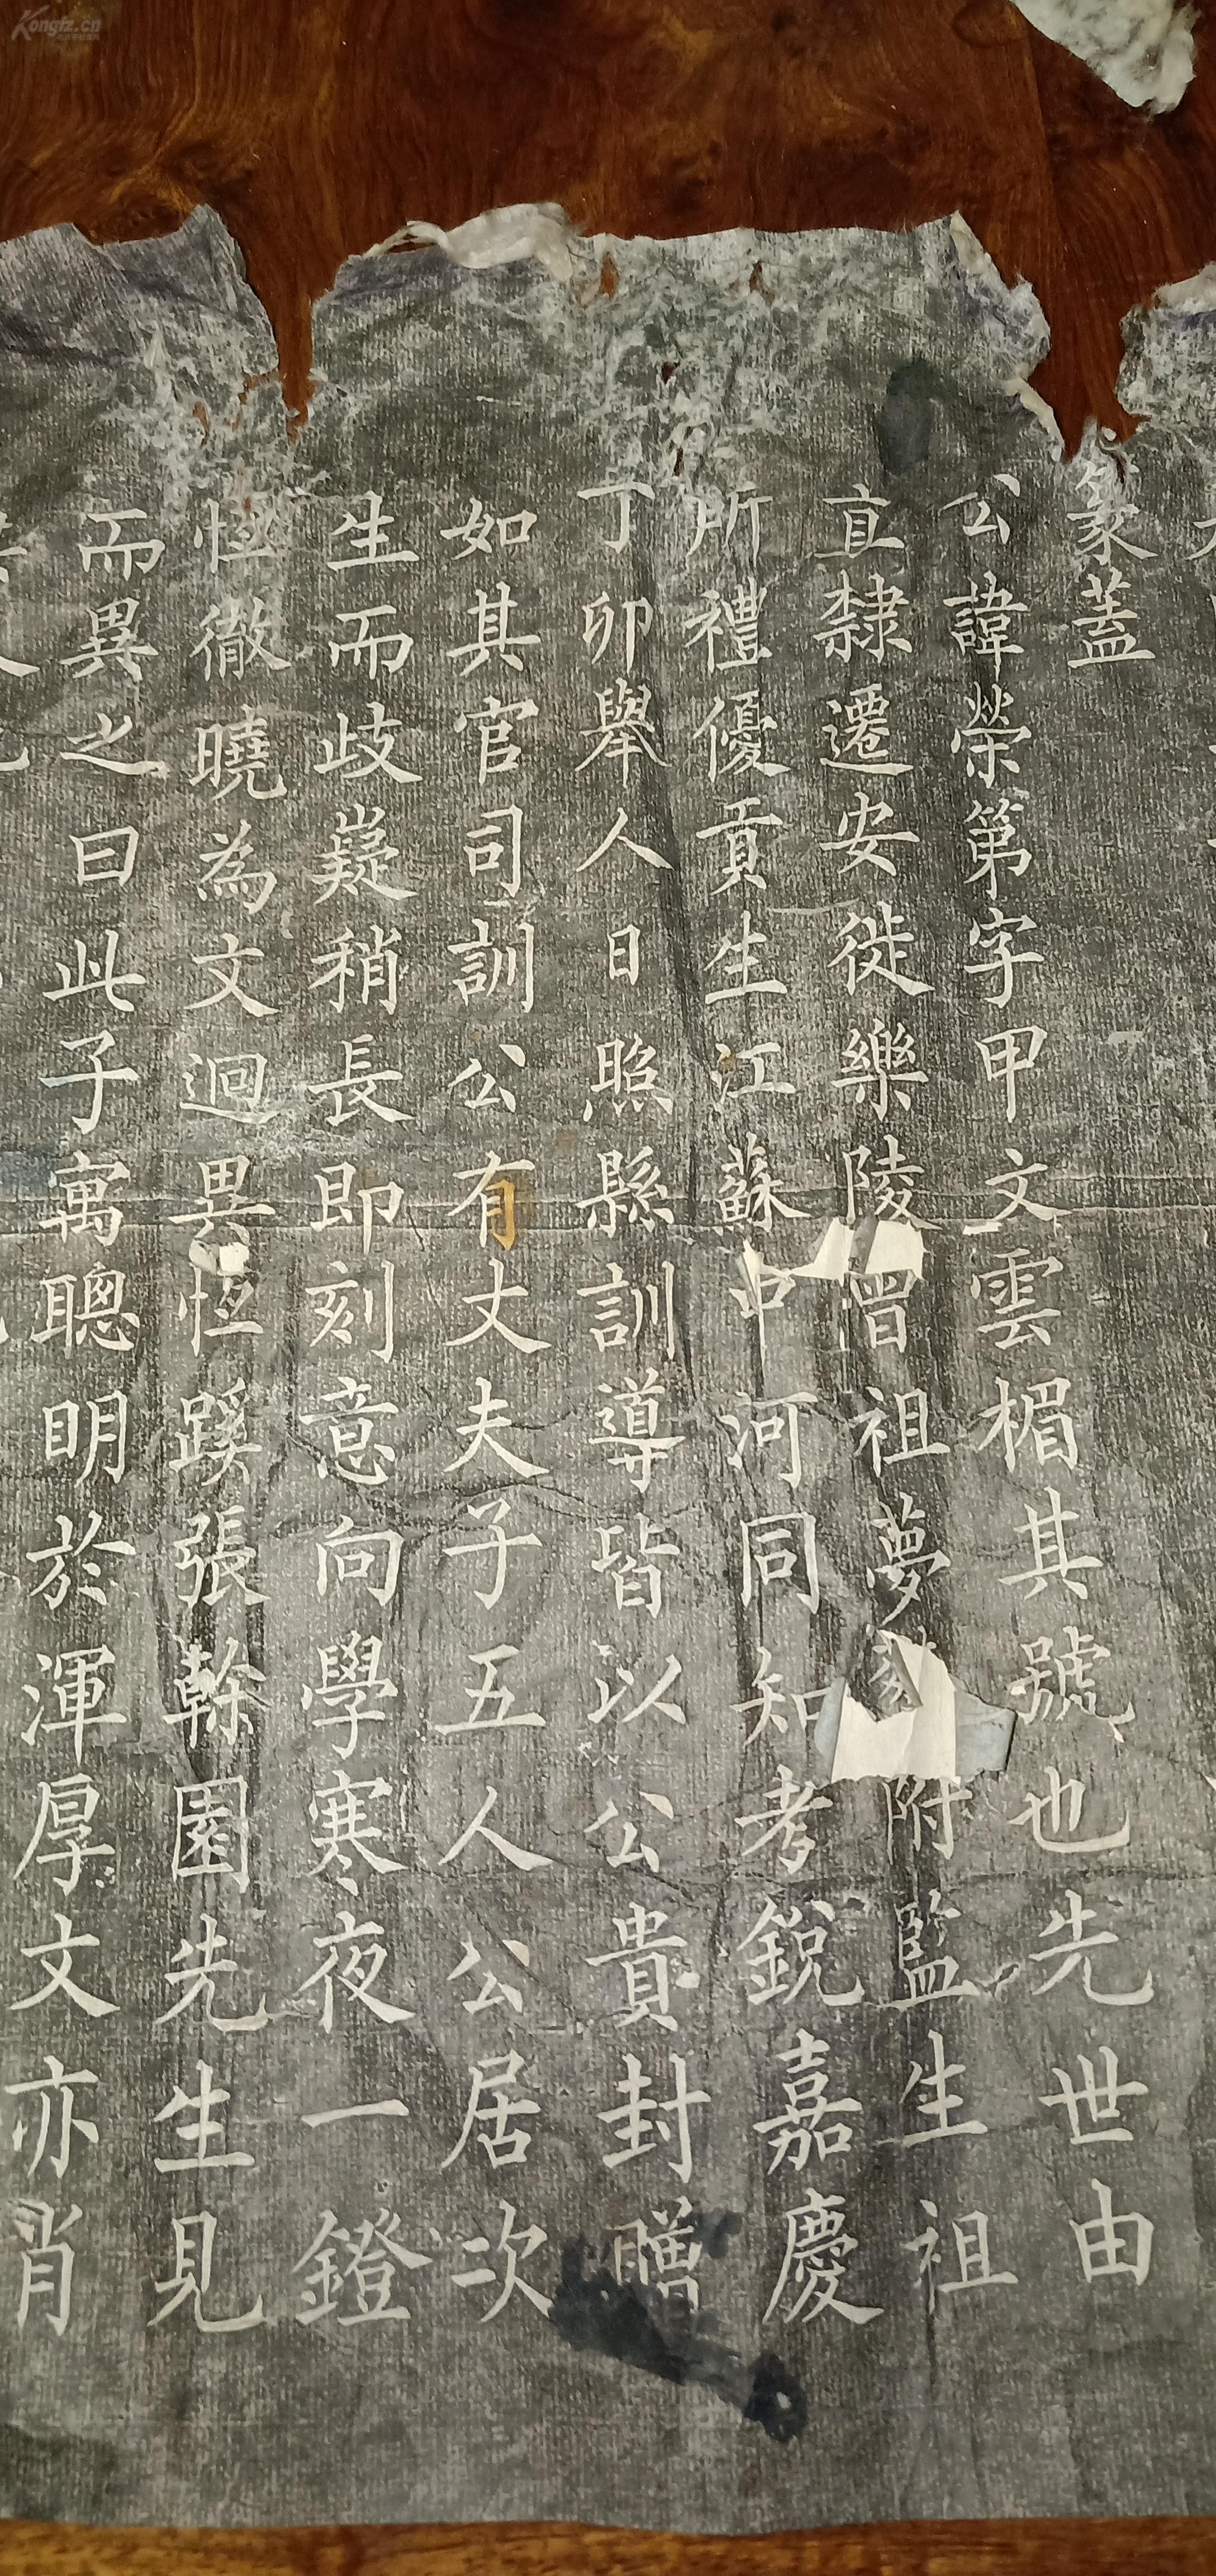 篆蓋
公諱榮第字甲文雲楣其號也先世由
直隸遷安徙樂陵曾祖夢附監生祖
所禮優貢生江蘇中河同知考銳嘉慶
丁卯舉人日照縣訓導皆以公貴封贈
如其官司訓公有丈夫子五人公居次
生而歧嶷稍長即刻意向學寒夜一鐙
恆徹曉為文迥異恆蹊張幹園先生見
而異之曰此子寓聰明於渾厚文亦肖
Kongfz.cn